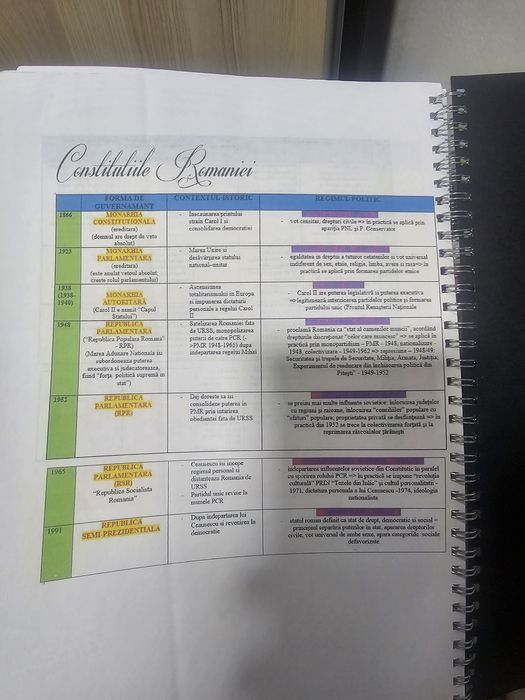 Constitutiile Romaniei
FORMA DE
GUVERNAMANT
CONTEXTUL ISTORIC
REGIMUL POLITIC
1866
MONARHIA
CONSTITUTIONALA
(ereditara)
(domnul are drept de veto
absolut)
- Inscaunarea printului
strain Carol I si
consolidarea democratiei
- vot cenzitar, drepturi civile => in practică se aplică prin
apariția PNL și P. Conservator
1923
MONARHIA
PARLAMENTARA
(ereditara)
(este anulat vetoul absolut;
creste rolul parlamentului)
- Marea Unire si
desăvârșirea statului
national-unitar
- egalitatea in drepturi a tuturor cetatenilor si vot universal
indiferent de sex, etnie, religie, limba, avere si rasa=> in
practică se aplică prin formarea partidelor etnice
1938
(1938-
1940)
MONARHIA
AUTORITARĂ
(Carol II e numit "Capul
Statului")
- Ascensiunea
totalitarismului in Europa
si impunerea dictaturii
personale a regelui Carol
II
- Carol II are puterea legislativă si puterea executiva
=> legitimează interzicerea partidelor politice și formarea
partidului unic (Frontul Renașterii Naționale
1948
REPUBLICA
PARLAMENTARA
("Republica Populara Romana"
- RPR)
(Marea Adunare Nationala isi
subordoneaza puterea
executiva si judecatoreasca,
fiind "forța politică supremă in
stat")
- Satelizarea Romaniei fata
de URSS, monopolizarea
puterii de catre PCR (-
-PMR 1948-1965) dupa
indepartarea regelui Mihai
- proclamă Romania ca "stat al oamenilor muncii", acordând
drepturile discreționar "celor care muncesc" => se aplică in
practică prin monopartidism – PMR - 1948, nationalizare -
1948, colectivizare - 1949-1962 => represiune – 1948/49:
Securitatea și trupele de Securitate, Miliția, Armata, Justiția;
Experimentul de reeducare din închisoarea politică din
Pitești" - 1949-1952
1952
REPUBLICA
PARLAMENTARA
(RPR)
- Dej doreste sa isi
consolideze puterea in
PMR prin intarirea
obedientei fata de URSS
- se preiau mai multe influente sovietice: inlocuirea județelor
cu regiuni și raioane, înlocuirea "consiliilor" populare cu
"sfaturi" populare; proprietatea privată se desființează => in
practică din 1952 se trece la colectivizarea forțată și la
reprimarea răscoalelor țărănești
1965
REPUBLICA
PARLAMENTARA
(RSR)
"Republica Socialista
Romania"
- Ceausescu isi incepe
regimul personal si
distanteaza Romania de
URSS
- Partidul unic revine la
numele PCR
- indepartarea influentelor sovietice din Constitutie in paralel
cu sporirea rolului PCR => in practică se impune "revoluția
culturală" PRIN "Tezele din Iulie" si cultul personalitatii -
1971, dictatura personala a lui Ceausescu -1974, ideologia
nationalista
1991
REPUBLICA
SEMI-PREZIDENTIALA
- Dupa indepartarea lui
Ceausescu si revenirea la
democratie
- statul roman definit ca stat de drept, democratic si social =
principiul separării puterilor in stat, apararea drepturilor
civile, vot universal de ambe sexe, apara categoriile sociale
defavorizate